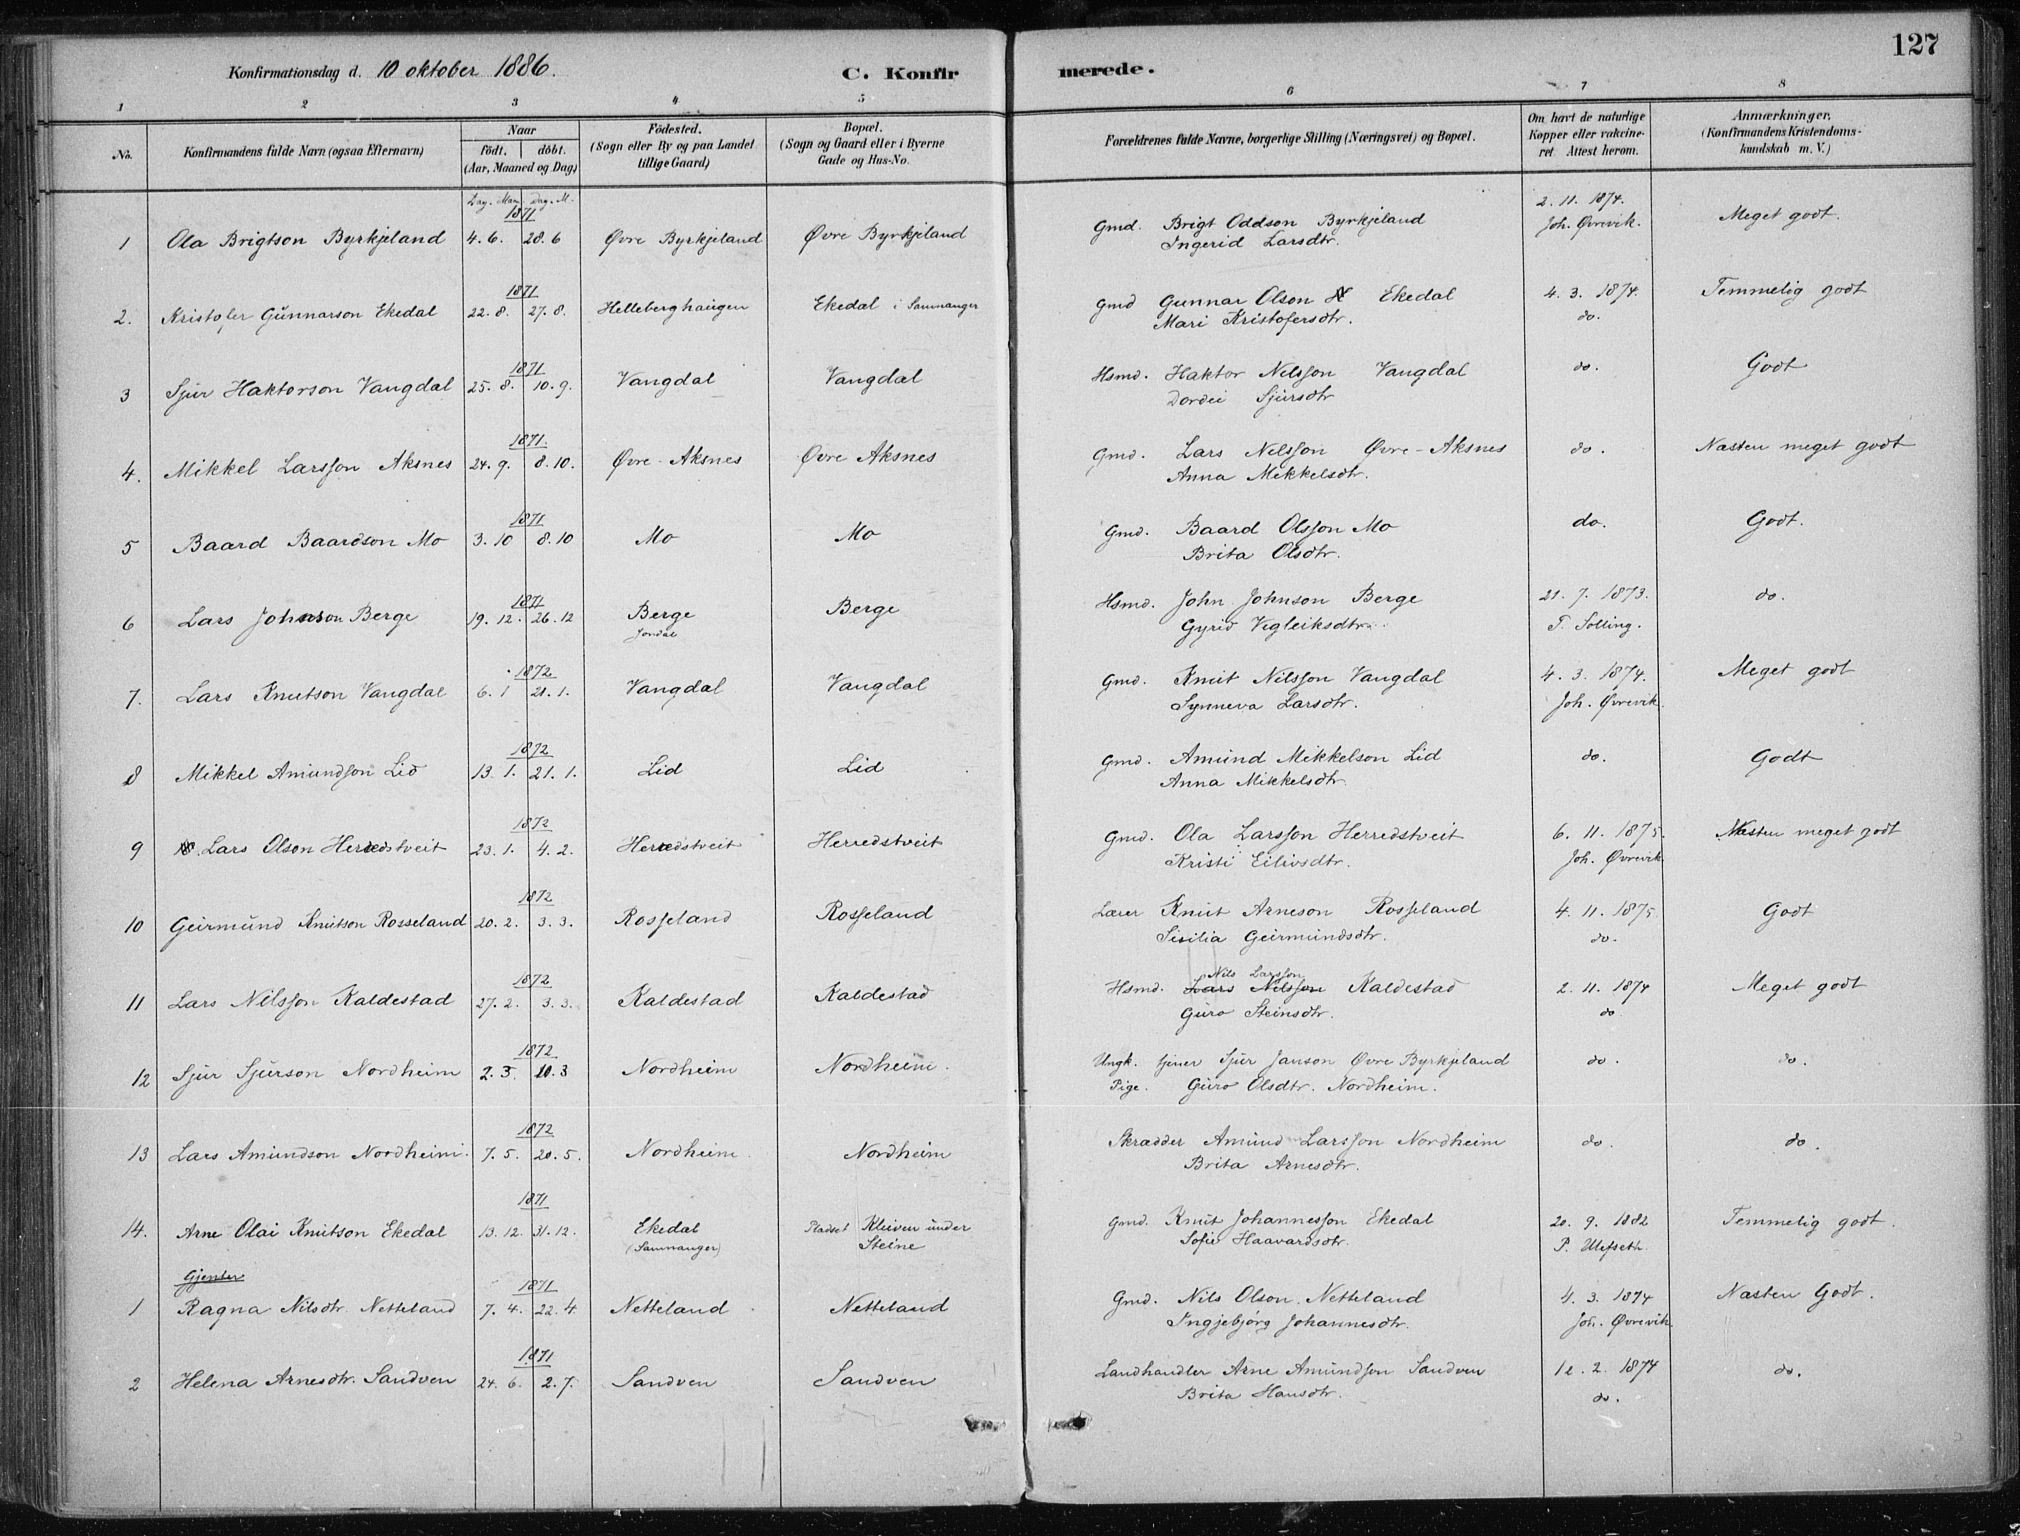 127
Konfirmationsdag d. 10 oktober 1886. C. Konfirmerede.
1 2 3 4 5 6 7 8
No. Konfirmandens fulde Navn (ogsaa Efternavn) Naar födt. döbt. (Aar, Maaned og Dag) Födested. (Sogn eller By og paa Landet tillige Gaard) Bopæl. (Sogn og Gaard eller i Byerne Gade og Hus-No. Forældrenes fulde Navne, borgerlige Stilling (Næringsvei) og Bopæl. Om havt de naturlige Kopper eller vakcineret. Attest herom. Anmærkninger. (Konfirmandens Kristendomskundskab m. V.)
Dag. Maan. Dag. M.
1871 2. 11. 1874.
1 Ola Brigtson Byrkjeland 4. 6. 28. 6 Øvre Byrkjeland Øvre Byrkjeland Gmd. Brigt Oddson Byrkjeland Joh. Øvrevik. Meget godt.
Ingerid Larsdtr.
1871
2. Kristofer Gunnarson Ekedal 22. 8. 27. 8. Helleberghaugen Ekedal i Samnanger Gmd Gunnar Olson Ekedal 4. 3. 1874. Temmelig godt
Mari Kristofersdtr. do.
1871
3 Sjur Haktorson Vangdal 25. 8. 10. 9. Vangdal Vangdal Hsmd. Haktor Nilsson Vangdal do. Godt
Dordei Sjursdtr
1871.
4. Mikkel Larsson Aksnes 24. 9. 8. 10. Øvre-Aksnes Øvre Aksnes Gmd. Lars Nilsson Øvre-Aksnes do. Næsten meget godt
Anna Mikkelsdtr.
1871
5 Baard Baardson Mo 3. 10 8. 10 Mo Mo Gmd. Baard Olsson Mo do. Godt.
Brita Olsdtr.
1871
6 Lars Johnson Berge 19. 12. 26. 12 Berge Berge Hsmd. John Johnson Berge 21. 7. 1873. do.
Jondal Gyrid Vigleiksdtr. T. Solling.
1872
7. Lars Knutson Vangdal 6. 1 21. 1. Vangdal Vangdal Gmd. Knut Nilsson Vangdal 4. 3. 1874. Meget godt
Synneva Larsdtr. Joh. Øvrevik.
1872
8 Mikkel Amundson Lid 13. 1. 21. 1. Lid Lid Gmd. Amund Mikkelson Lid do. Godt
Anna Mikkelsdtr.
1872
9 Lars Olson Herredstveit 23. 1. 4. 2. Herredstveit Herredstveit Gmd. Ola Larsson Herredstveit 6. 11. 1875. Næsten meget godt
Kristi Eilivsdtr. Joh. Øvrevik.
1872
10 Geirmund Knutson Rosseland 20. 2. 3. 3. Rosseland Rosseland Lærer Knut Arneson Rosseland 4. 11. 1875. Godt
Sisilia Geirmundsdtr. do.
1872 Nils Larsson
11 Lars Nilsson Kaldestad 27. 2. 3. 3. Kaldestad Kaldestad Hsmd. Lars Nilsson Kaldestad 2. 11. 1874 Meget godt
Guro Steinsdtr. do.
1872
12 Sjur Sjurson Nordheim 2. 3. 10. 3 Nordheim Nordheim. Ungk. tjener Sjur Janson Øvre Byrkjeland do. do.
Pige. Guro Olsdtr. Nordheim.
1872
13 Lars Amundson Nordheim. 7. 5. 20. 5. Nordheim. Nordheim Skrædder Amund Larsson Nordheim do. do.
Brita Arnesdtr.
1871
14. Arne Olai Knutson Ekedal 13. 12. 31. 12. Ekedal Pladset Kleiven under Gmd. Knut Johannesson Ekedal 20. 9. 1882 Temmelig godt.
(Samnanger) Steine Sofie Haavardsdtr. P. Ulefseth.
Gjenter
1871
1 Ragna Nilsdtr. Netteland 7. 4. 22. 4 Netteland Netteland Gmd. Nils Olson Netteland 4. 3. 1874 Næsten Godt.
Ingjebjørg Johannesdtr. Joh. Øvrevik.
1871
2 Helena Arnesdtr. Sandven 24. 6. 2. 7. Sandven Sandven Landhandler Arne Amundson Sandven 12. 2. 1874 do.
Brita Hansdtr. do.